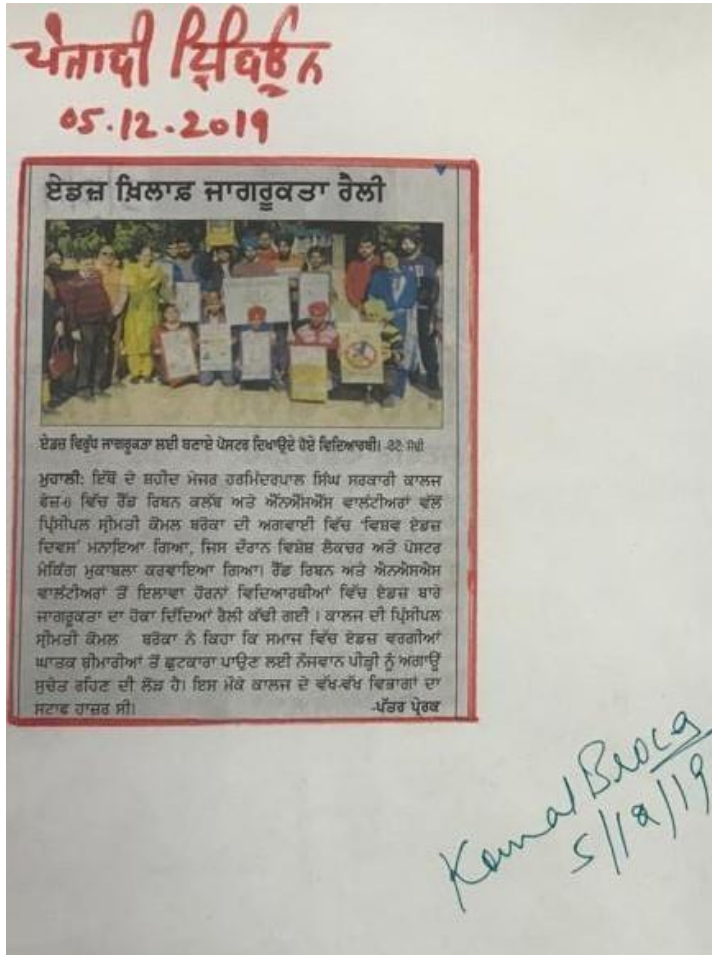 ਪੰਜਾਬੀ ਟ੍ਰਿਬਿਊਨ
05.12.2019
ਏਡਜ਼ ਖ਼ਿਲਾਫ਼ ਜਾਗਰੂਕਤਾ ਰੈਲੀ
ਏਡਜ਼ ਵਿਰੁੱਧ ਜਾਗਰੂਕਤਾ ਲਈ ਬਣਾਏ ਪੋਸਟਰ ਦਿਖਾਉਂਦੇ ਹੋਏ ਵਿਦਿਆਰਥੀ। -ਫੋਟੋ: ਸੋਢੀ
ਮੁਹਾਲੀ: ਇੱਥੋਂ ਦੇ ਸ਼ਹੀਦ ਮੇਜਰ ਹਰਮਿੰਦਰਪਾਲ ਸਿੰਘ ਸਰਕਾਰੀ ਕਾਲਜ
ਫੇਜ਼-6 ਵਿੱਚ ਰੈੱਡ ਰਿਬਨ ਕਲੱਬ ਅਤੇ ਐੱਨਐੱਸਐੱਸ ਵਾਲੰਟੀਅਰਾਂ ਵੱਲੋਂ
ਪ੍ਰਿੰਸੀਪਲ ਸ੍ਰੀਮਤੀ ਕੋਮਲ ਬਰੋਕਾ ਦੀ ਅਗਵਾਈ ਵਿੱਚ ‘ਵਿਸ਼ਵ ਏਡਜ਼
ਦਿਵਸ’ ਮਨਾਇਆ ਗਿਆ, ਜਿਸ ਦੌਰਾਨ ਵਿਸ਼ੇਸ਼ ਲੈਕਚਰ ਅਤੇ ਪੋਸਟਰ
ਮੇਕਿੰਗ ਮੁਕਾਬਲਾ ਕਰਵਾਇਆ ਗਿਆ। ਰੈੱਡ ਰਿਬਨ ਅਤੇ ਐਨਐਸਐਸ
ਵਾਲੰਟੀਅਰਾਂ ਤੋਂ ਇਲਾਵਾ ਹੋਰਨਾਂ ਵਿਦਿਆਰਥੀਆਂ ਵਿੱਚ ਏਡਜ਼ ਬਾਰੇ
ਜਾਗਰੂਕਤਾ ਦਾ ਹੋਕਾ ਦਿੰਦਿਆਂ ਰੈਲੀ ਕੱਢੀ ਗਈ। ਕਾਲਜ ਦੀ ਪ੍ਰਿੰਸੀਪਲ
ਸ੍ਰੀਮਤੀ ਕੋਮਲ ਬਰੋਕਾ ਨੇ ਕਿਹਾ ਕਿ ਸਮਾਜ ਵਿੱਚ ਏਡਜ਼ ਵਰਗੀਆਂ
ਘਾਤਕ ਬੀਮਾਰੀਆਂ ਤੋਂ ਛੁਟਕਾਰਾ ਪਾਉਣ ਲਈ ਨੌਜਵਾਨ ਪੀੜ੍ਹੀ ਨੂੰ ਅਗਾਊਂ
ਸੁਚੇਤ ਰਹਿਣ ਦੀ ਲੋੜ ਹੈ। ਇਸ ਮੌਕੇ ਕਾਲਜ ਦੇ ਵੱਖ-ਵੱਖ ਵਿਭਾਗਾਂ ਦਾ
ਸਟਾਫ ਹਾਜ਼ਰ ਸੀ। -ਪੱਤਰ ਪ੍ਰੇਰਕ
Komal Broca
5/12/19